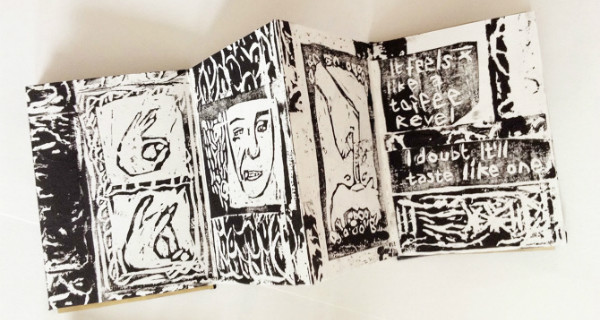 it feels
like a
toffee
Revel
I doubt it'll
taste like one